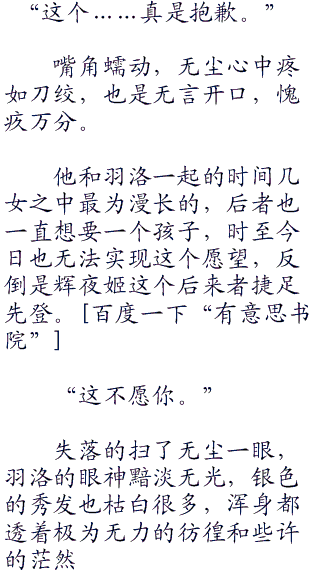 “这个……真是抱歉。”
嘴角蠕动，无尘心中疼
如刀绞，也是无言开口，愧
疚万分。
他和羽洛一起的时间几
女之中最为漫长的，后者也
一直想要一个孩子，时至今
日也无法实现这个愿望，反
倒是辉夜姬这个后来者捷足
先登。[百度一下“有意思书
院”]
“这不愿你。”
失落的扫了无尘一眼，
羽洛的眼神黯淡无光，银色
的秀发也枯白很多，浑身都
透着极为无力的彷徨和些许
的茫然